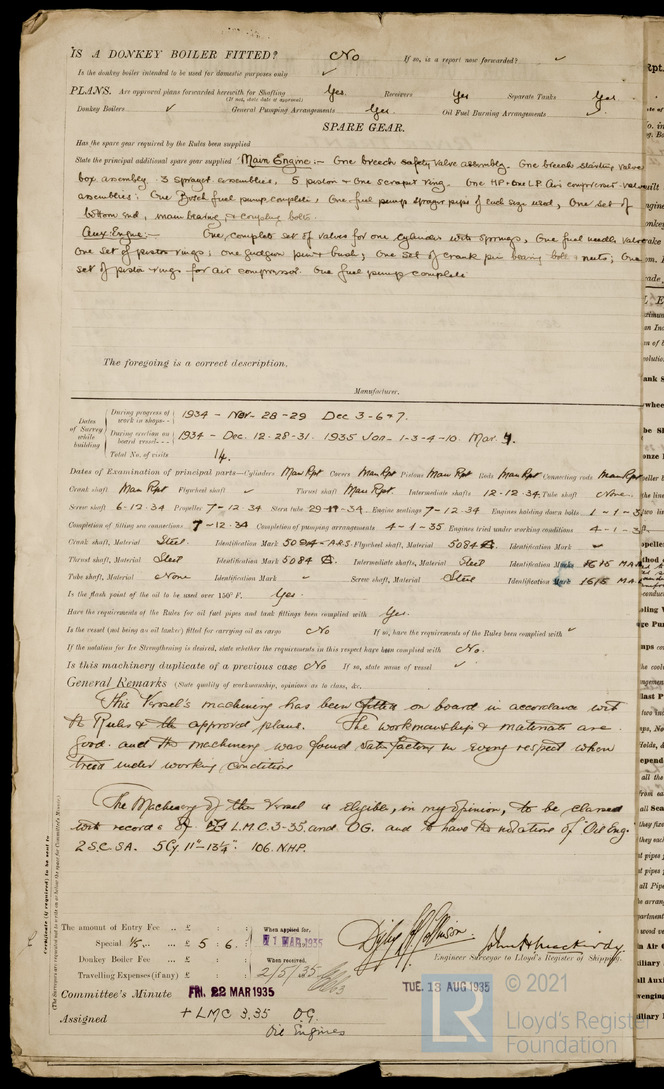 IS A DONKEY BOILER FITTED? No If so, is a report now forwarded? ✓
Is the donkey boiler intended to be used for domestic purposes only ✓
PLANS. Are approved plans forwarded herewith for Shafting Yes Receivers Yes Separate Tanks Yes
(If not, state date of approval)
Donkey Boilers ✓ General Pumping Arrangements Yes Oil Fuel Burning Arrangements ✓
SPARE GEAR.
Has the spare gear required by the Rules been supplied
State the principal additional spare gear supplied Main Engine:- One breech safety valve assembly. One breech starting valve
box assembly. 3 sprayer assemblies, 5 piston + One scraper ring. One HP + One LP Air compressor valve
assemblies: One Bosch fuel pump complete, One fuel pump sprayer pipe of each size used, One set of
bottom end, main bearing & coupling bolts.
Aux: Engine:- One complete set of valves for one cylinder with springs, One fuel needle valve
One set of piston rings, one gudgeon pin + bush; One set of crank pin bearing bolts + nuts; One
set of piston rings for air compressor. One fuel pump complete
The foregoing is a correct description.
Manufacturer.
Dates of Survey while building
During progress of work in shops - - 1934 - Nov - 28 - 29 Dec 3 - 6 + 7.
During erection on board vessel - - - 1934 - Dec. 12 - 28 - 31. 1935 Jan - 1 - 3 - 4 - 10. Mar. 4.
Total No. of visits 14.
Dates of Examination of principal parts—Cylinders Man Rpt Covers Man Rpt Pistons Man Rpt Rods Man Rpt Connecting rods Man Rpt
Crank shaft Man Rpt Flywheel shaft ✓ Thrust shaft Man Rpt. Intermediate shafts 12.12.34. Tube shaft None.
Screw shaft 6-12.34 Propeller 7-12.34 Stern tube 29-11-34. Engine seatings 7-12.34 Engines holding down bolts 1-1-3
Completion of fitting sea connections 7-12.34 Completion of pumping arrangements 4-1-35 Engines tried under working conditions 4-1-3
Crank shaft, Material Steel. Identification Mark 5084 Flywheel shaft, Material 5084 Identification Mark ✓
Thrust shaft, Material Steel Identification Mark 5084 Intermediate shafts, Material Steel Identification Marks 1615 MA
Tube shaft, Material None Identification Mark ✓ Screw shaft, Material Steel Identification Mark 1615 MA
Is the flash point of the oil to be used over 150° F. Yes.
Have the requirements of the Rules for oil fuel pipes and tank fittings been complied with Yes.
Is the vessel (not being an oil tanker) fitted for carrying oil as cargo No If so, have the requirements of the Rules been complied with ✓
If the notation for Ice Strengthening is desired, state whether the requirements in this respect have been complied with No.
Is this machinery duplicate of a previous case No If so, state name of vessel ✓
General Remarks (State quality of workmanship, opinions as to class, &c.
This Vessel's machinery has been fitted on board in accordance with
the Rules & the approved plans. The workmanship & materials are
good. and the machinery was found satisfactory in every respect when
tried under working conditions
The Machinery of this Vessel is eligible, in my opinion, to be classed
with records of L.M.C. 3-35. and OG. and to have the notations of "Oil Eng.
2 S.C. SA. 5Cy. 11"-13¾". 106. N.H.P.
The amount of Entry Fee .. £ : :
Special .. £ 5 : 6 :
Donkey Boiler Fee ... £ : :
Travelling Expenses (if any) £ : :
When applied for, MAR 1935
When received, 2/5/35
Engineer Surveyor to Lloyd's Register of Shipping.
Committee's Minute FRI. 22 MAR 1935 TUE. 13 AUG 1935
Assigned + LMC 3.35 O.G.
Oil Engines
© 2021
LR
Lloyd's Register
Foundation